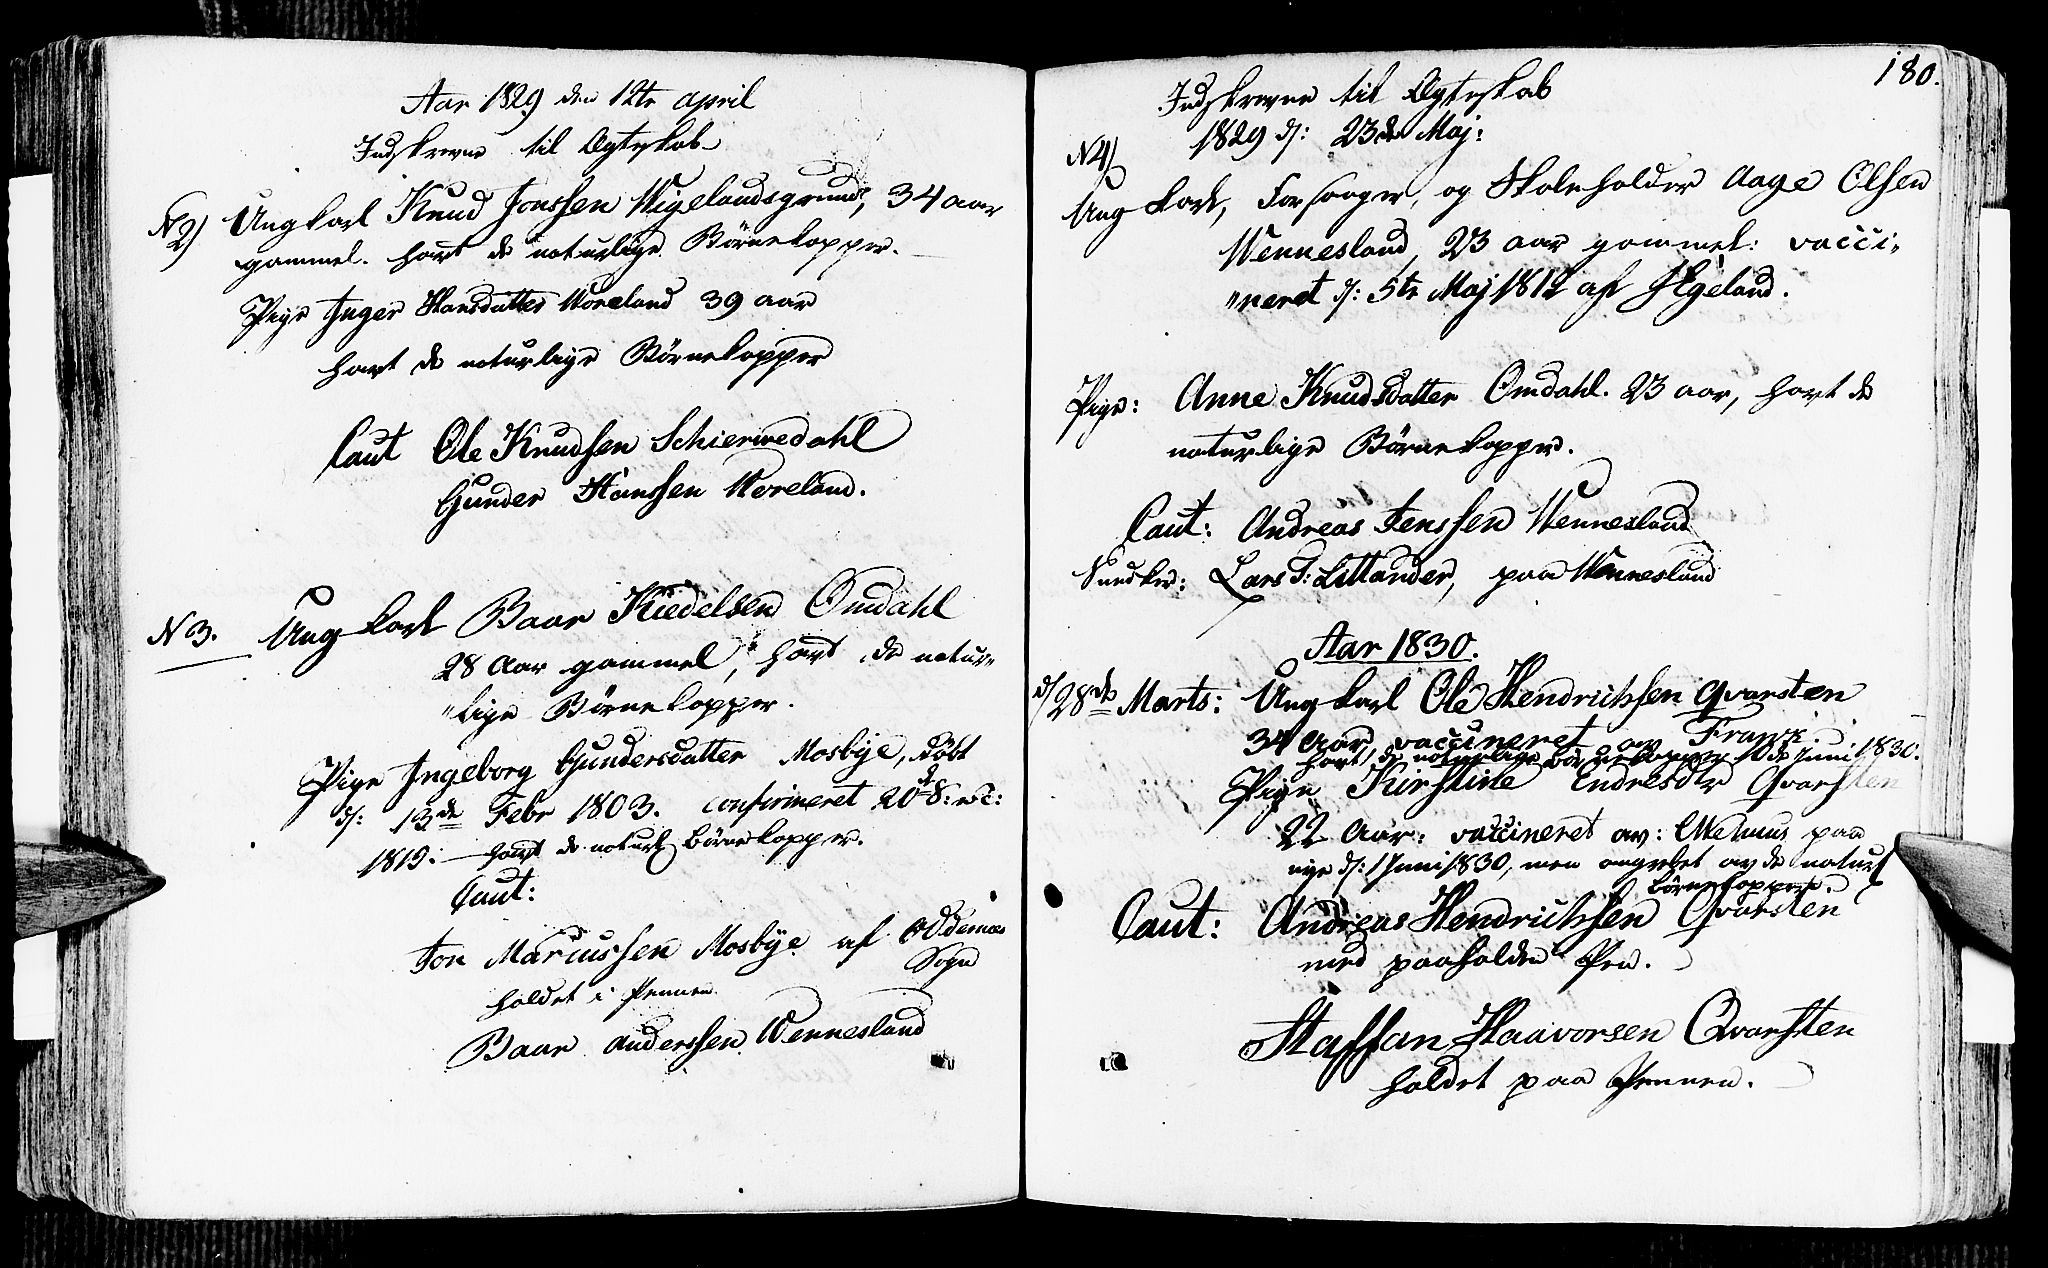 Aar 1829 den 12te April
Indskrevne til Ægteskab
N 2) Ungkarl Knud Jonssen Wigelandsgrund, 34 aar
gammel. havt de naturlige Børnekopper.
Pige Inger Hansdatter Woreland 39 aar
havt de naturlige Børnekopper
Caut Ole Knudsen Schierwedahl
Gunder Hanssen Woreland.
N 3. Ungkarl Baar Kiedelsen Omdahl
28 Aar gammel, havt de natur„
„lige Børnekopper.
Pige Ingeborg Gundersdatter Mosbye, døbt
d: 13de Febr 1803. confirmeret 20 8:
1819. havt de naturl Børnekopper.
Caut:
Jon Marcussen Mosbye af Oddernes
Sogn
holdet i Pennen
Baar Anderssen Wennesland
180.
Indskrevne til Ægteskab
1829 d: 23de Maj:
N 4)
Ungkarl, Forsanger, og Skoleholder Aage Olsen
Wennesland, 23 aar gammel: vacci„
„neret d: 5te Maj 1812 af Egeland.
Pige: Anne Knudsdatter Omdahl. 23 aar, havt de
naturlige Børnekopper.
Caut: Andreas Jenssen Wennesland
Lars T: Littander, paa Wennesland
Aar 1830.
d/28de Marts: Ungkarl Ole Hendrichsen Qvarsten
34 Aar, vaccineret av Frantz.
havt de naturlige Børnekopper 10de Juni 1830.
Pige Kirstine Endresdtr Qvarsten
22 Aar: vaccineret av: paa
nye d: 1 Juni 1830, men angrebet av de naturl
Børnekopper.
Caut: Andreas Hendrichsen Qvarsten
med paaholden Pen.
Staffan Haavorsen Qvarsten
holdet paa Pennen.